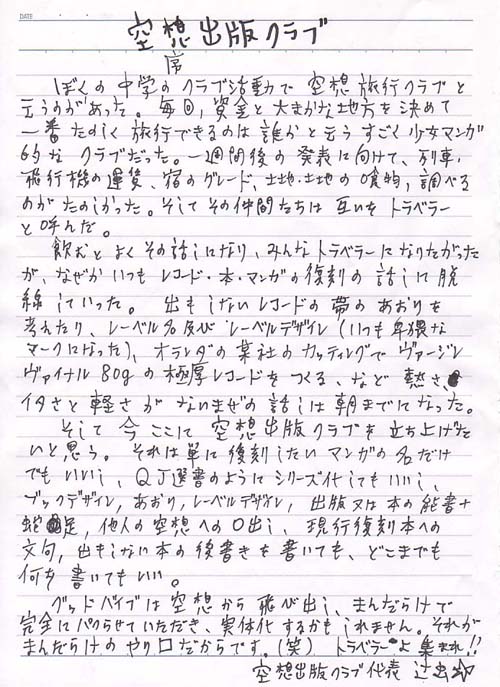 DATE
空想出版クラブ
序
ぼくの中学のクラブ活動で空想旅行クラブと
云うのがあった。毎回,資金と大まかな地方を決めて
一番たのしく旅行できるのは誰かと云うすごく少女マンガ
的なクラブだった。一週間後の発表に向けて、列車・
飛行機の運賃、宿のグレード、土地・土地の喰物,調べる
のがたのしかった。そしてその仲間たちは互いをトラベラー
と呼んだ。
飲むとよくその話しになり,みんなトラベラーになりたがった
が、なぜかいつもレコード・本・マンガの復刻の話しに脱
線していった。出もしないレコードの帯のあおりを
考えたり、レーベル名及びレーベルデザイン(いつも卑猥な
マークになった),オランダの某社のカッティングでヴァージン
ヴァイナル80gの極厚レコードをつくる、など熱さ、
イタさと軽さがないまぜの話しは朝までになった。
そして今ここに空想出版クラブを立ち上げた
いと思う。それは単に復刻したいマンガの名だけ
でもいいし、QJ選書のようにシリーズ化してもいいし、
ブックデザイン,あおり,レーベルデザイン,出版又は本の能書+
蛇足,他人の空想への口出し、現行復刻本への
文句,出もしない本の後書きを書いても、どこまでも
何を書いてもいい。
グッドバイブは空想から飛び出し、まんだらけで
完全にパクらせていただき、実体化するかもしれません。それが
まんだらけのやり口だからです。(笑) トラベラーよ集まれ!?
空想出版クラブ代表